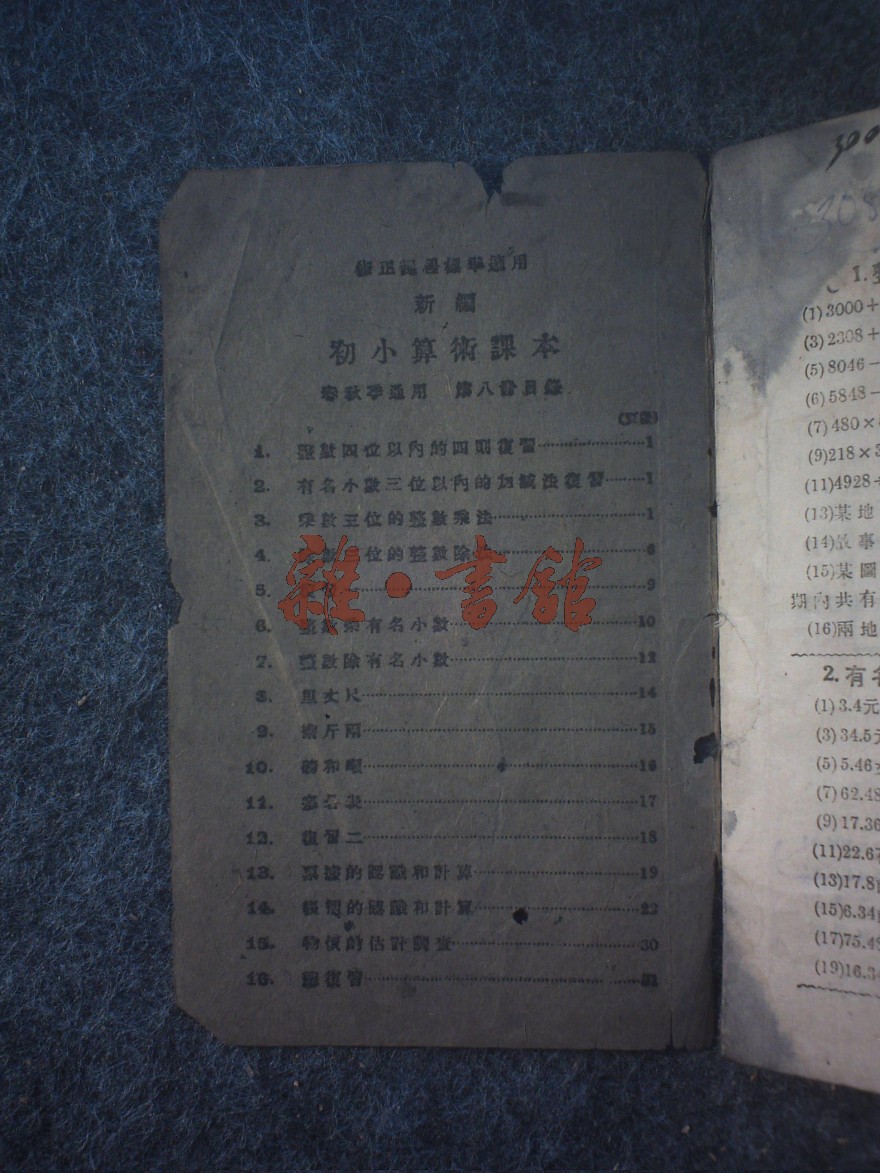 修正課程標準適用
新編
初小算術課本
春秋季適用 第八冊目錄
(頁數)
1. 整數四位以內的四則復習 1
2. 有名小數三位以內的加減法復習 1
3. 乘數三位的整數乘法 1
4. 數三位的整數除 6
5. 9
6. 整數乘有名小數 10
7. 整數除有名小數 12
8. 里丈尺 14
9. 擔斤兩 15
10. 磅和噸 16
11. 17
12. 復習二 18
13. 票據的認識和計算 19
14. 帳簿的認識和計算 22
15. 物價的估計調查 30
16. 總復習 31
雜·書館
300
108
1.整
(1)3000+
(3)2308+
(5)8046-
(6)5848-
(7)480×
(9)218×3
(11)4928÷
(13)某地
(14)故事
(15)某圖
期內共有
(16)兩地
2.有名
(1)3.4元
(3)34.5元
(5)5.46×
(7)62.48
(9)17.36
(11)22.67
(13)17.8
(15)6.34
(17)75.48
(19)16.34